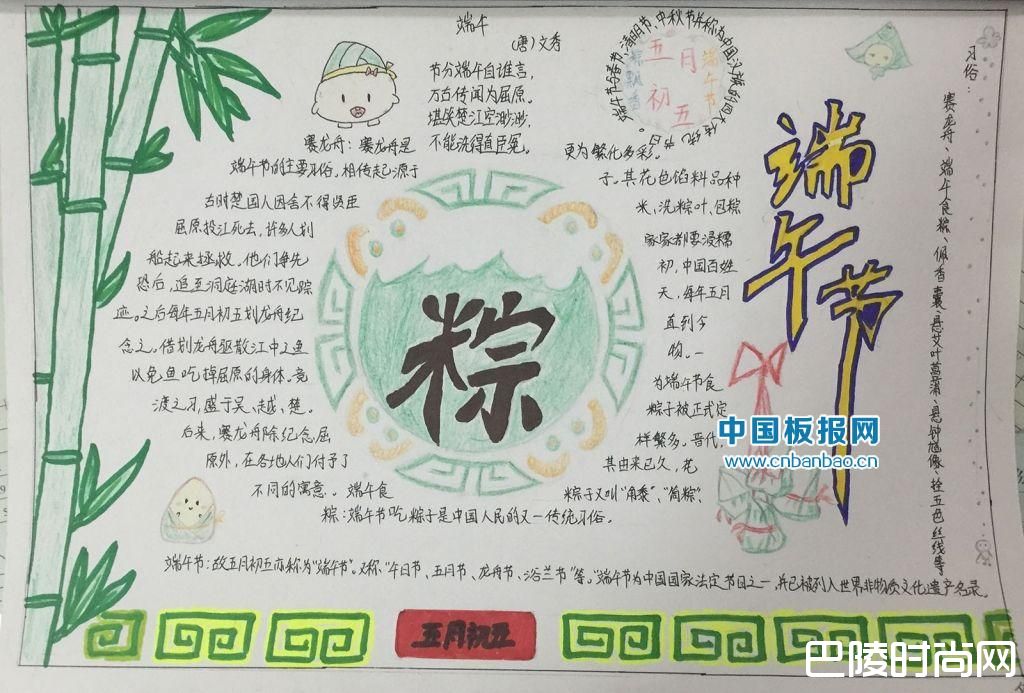 端午
(唐)文秀
节分端午自谁言，
万古传闻为屈原。
堪笑楚江空渺渺，
不能洗得直臣冤。
端午节与春节、清明节、中秋节并称为中国汉族的四大传统节日。
五月初五
粽飘香
端午节
端午节
习俗：
赛龙舟、端午食粽、佩香囊、悬艾叶菖蒲、悬钟馗像、拴五色丝线等
赛龙舟：赛龙舟是
端午节的主要习俗。相传起源于
古时楚国人因舍不得贤臣
屈原投江死去，许多人划
船起来拯救。他们争先
恐后，追至洞庭湖时不见踪
迹。之后每年五月初五划龙舟纪
念之。借划龙舟驱散江中之鱼
以免鱼吃掉屈原的身体。竞
渡之习，盛于吴、越、楚。
后来，赛龙舟除纪念屈
原外，在各地人们付予了
不同的寓意。 端午食
粽：端午节吃粽子是中国人民的又一传统习俗。
粽子又叫“角黍”、“筒粽”、
其由来已久，花
样繁多。晋代，
粽子被正式定
为端午节食
物。一
直到今
天，每年五月
初，中国百姓
家家都要浸糯
米、洗粽叶、包粽
子。其花色馅料品种
更为繁化多彩。
粽
中国板报网
www.cnbanbao.cn
端午节：故五月初五亦称为“端午节”。又称“午日节、五月节、龙舟节、浴兰节”等。“端午节为中国国家法定节日之一，并已被列入世界非物质文化遗产名录。
五月初五
巴陵时尚网